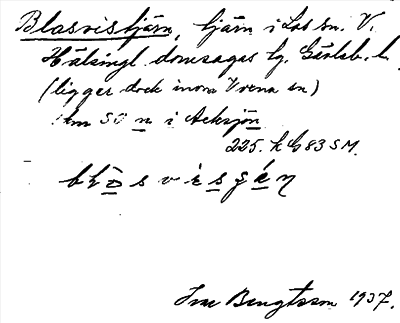 Blasvistjärn, tjärn i Los sn. V.
Hälsingl. domsagas tg. Gävleb. l.
(ligger dock inom Voxna sn)
1 km SO n i Acksjön
225. h G 83 SM.
Bengtsson 1937.